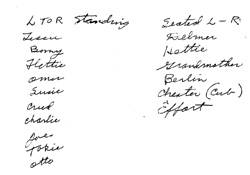 L TO R Standing
Jessie
Benny
Hettie
Omer
Susie
Crud
Charlie
Toxie
Otto
Seated L - R
Delmer
Hettie
Grandmother
Berlin
Chester (Cub)
Effort